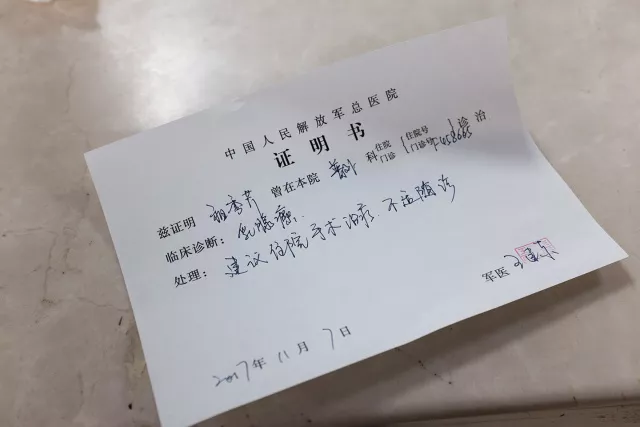 中国人民解放军总医院
证明书
兹证明 曾在本院 科 住院 门诊 { 住院号 门诊号 F458665 } 诊治
临床诊断：乳腺癌.
处理：建议住院手术治疗.不适随诊
军医
2017年11月7日